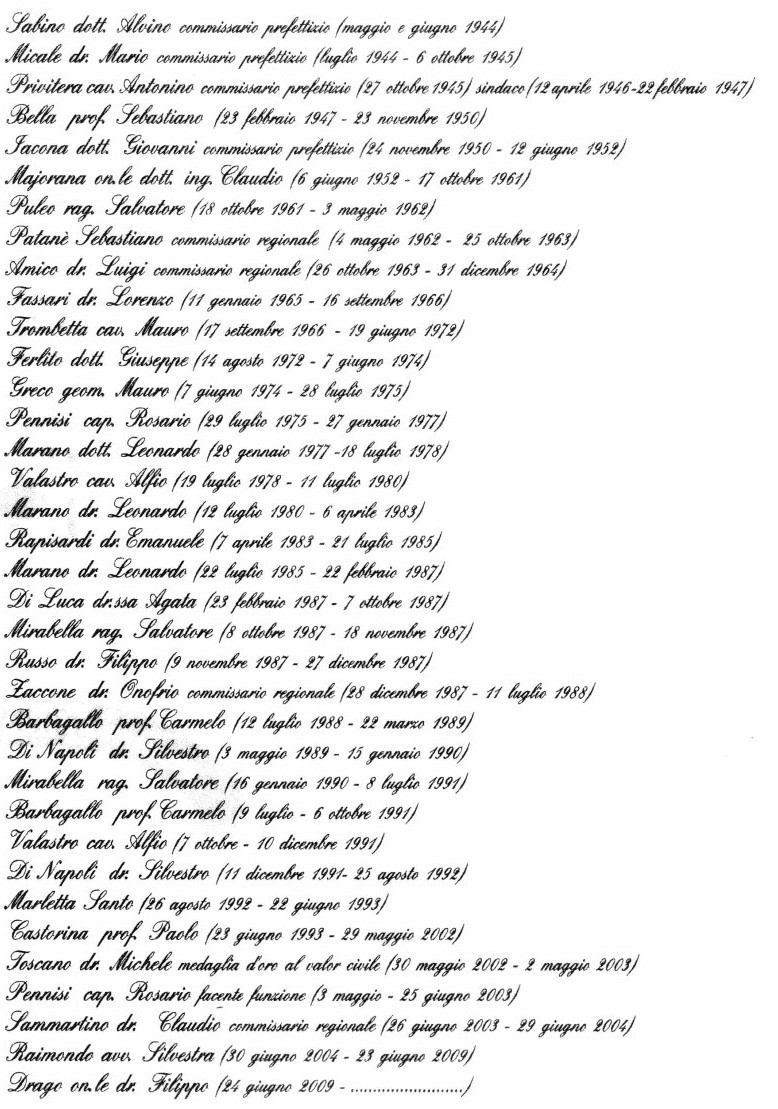 Sabino dott. Alvino commissario prefettizio (maggio e giugno 1944)
Micale dr. Mario commissario prefettizio (luglio 1944 - 6 ottobre 1945)
Privitera cav. Antonino commissario prefettizio (27 ottobre 1945) sindaco (12 aprile 1946-22 febbraio 1947)
Bella prof. Sebastiano (23 febbraio 1947 - 23 novembre 1950)
Iacona dott. Giovanni commissario prefettizio (24 novembre 1950 - 12 giugno 1952)
Majorana on.le dott. ing. Claudio (6 giugno 1952 - 17 ottobre 1961)
Puleo rag. Salvatore (18 ottobre 1961 - 3 maggio 1962)
Patanè Sebastiano commissario regionale (4 maggio 1962 - 25 ottobre 1963)
Amico dr. Luigi commissario regionale (26 ottobre 1963 - 31 dicembre 1964)
Fassari dr. Lorenzo (11 gennaio 1965 - 16 settembre 1966)
Trombetta cav. Mauro (17 settembre 1966 - 19 giugno 1972)
Ferlito dott. Giuseppe (14 agosto 1972 - 7 giugno 1974)
Greco geom. Mauro (7 giugno 1974 - 28 luglio 1975)
Pennisi cap. Rosario (29 luglio 1975 - 27 gennaio 1977)
Marano dott. Leonardo (28 gennaio 1977 -18 luglio 1978)
Valastro cav. Alfio (19 luglio 1978 - 11 luglio 1980)
Marano dr. Leonardo (12 luglio 1980 - 6 aprile 1983)
Rapisardi dr. Emanuele (7 aprile 1983 - 21 luglio 1985)
Marano dr. Leonardo (22 luglio 1985 - 22 febbraio 1987)
Di Luca dr.ssa Agata (23 febbraio 1987 - 7 ottobre 1987)
Mirabella rag. Salvatore (8 ottobre 1987 - 18 novembre 1987)
Russo dr. Filippo (9 novembre 1987 - 27 dicembre 1987)
Zaccone dr. Onofrio commissario regionale (28 dicembre 1987 - 11 luglio 1988)
Barbagallo prof. Carmelo (12 luglio 1988 - 22 marzo 1989)
Di Napoli dr. Silvestro (3 maggio 1989 - 15 gennaio 1990)
Mirabella rag. Salvatore (16 gennaio 1990 - 8 luglio 1991)
Barbagallo prof. Carmelo (9 luglio - 6 ottobre 1991)
Valastro cav. Alfio (7 ottobre - 10 dicembre 1991)
Di Napoli dr. Silvestro (11 dicembre 1991- 25 agosto 1992)
Marletta Santo (26 agosto 1992 - 22 giugno 1993)
Castorina prof. Paolo (23 giugno 1993 - 29 maggio 2002)
Toscano dr. Michele medaglia d'oro al valor civile (30 maggio 2002 - 2 maggio 2003)
Pennisi cap. Rosario facente funzione (3 maggio - 25 giugno 2003)
Sammartino dr. Claudio commissario regionale (26 giugno 2003 - 29 giugno 2004)
Raimondo avv. Silvestra (30 giugno 2004 - 23 giugno 2009)
Drago on.le dr. Filippo (24 giugno 2009 - .........................)